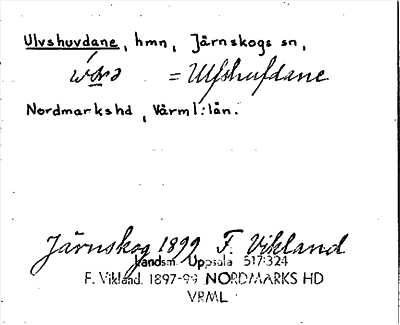 Ulvshuvdane, hmn, Järnskogs sn,
= Ulfshufdane
Nordmarkshd, Värml:län.
Järnskog 1899 F. Vikland
Landsm. Uppsala 517:324
F. Vikland. 1897-99 NORDMARKS HD
VRML